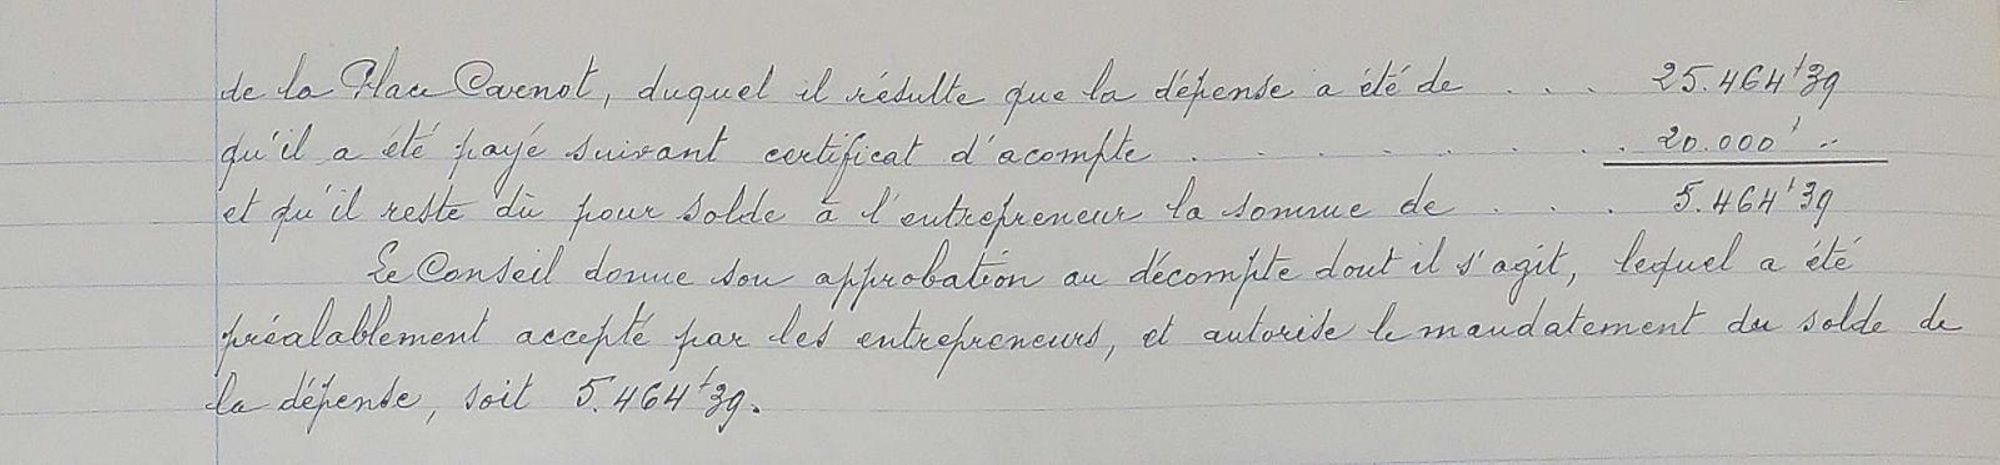 de la Place Carnot, duquel il résulte que la dépense a été de . . . 25.464f39
qu'il a été payé suivant certificat d'acompte . . . . . . . . 20.000f ..
et qu'il reste dû pour solde à l'entrepreneur la somme de . . . 5.464f39
Le Conseil donne son approbation au décompte dont il s'agit, lequel a été
préalablement accepté par les entrepreneurs, et autorise le mandatement du solde de
la dépense, soit 5.464f39.